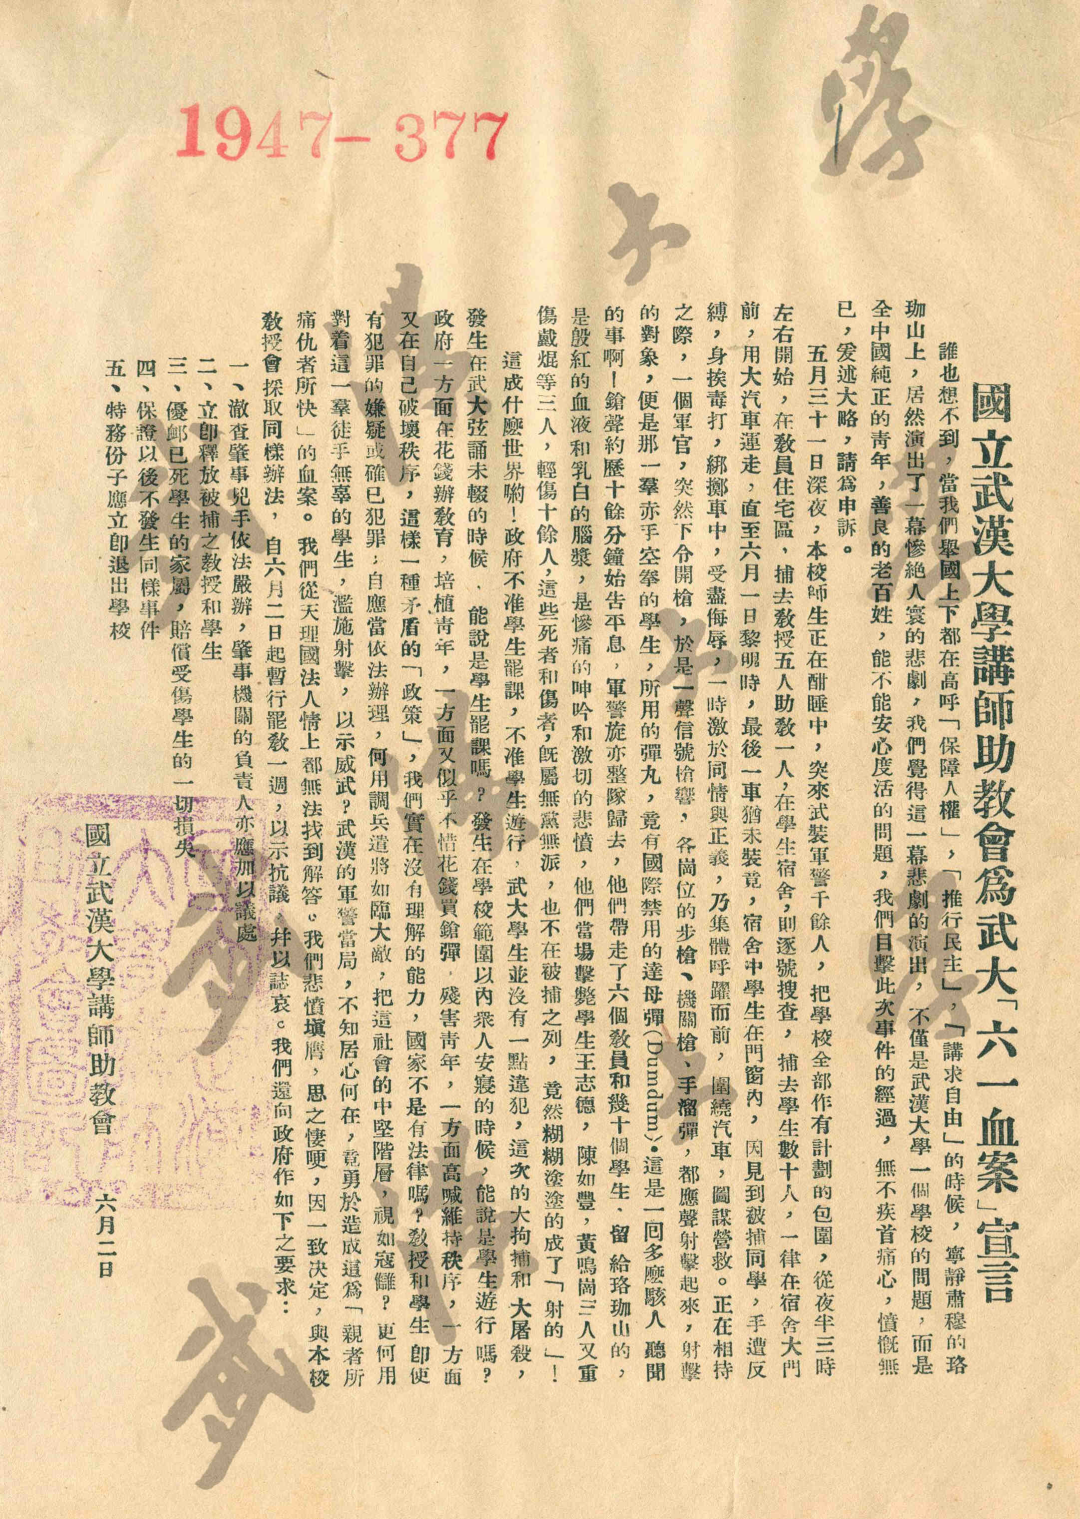 1947-377
國立武漢大學講師助教會爲武大「六一血案」宣言
誰也想不到，當我們舉國上下都在高呼「保障人權」，「推行民主」，「講求自由」的時候，寧靜肅穆的珞
珈山上，居然演出了一幕慘絕人寰的悲劇，我們覺得這一幕悲劇的演出，不僅是武漢大學一個學校的問題，而是
全中國純正的靑年，善良的老百姓，能不能安心度活的問題，我們目擊此次事件的經過，無不疾首痛心，憤慨無
已，爰述大略，請爲申訴。
五月三十一日深夜，本校師生正在酣睡中，突來武裝軍警千餘人，把學校全部作有計劃的包圍，從夜半三時
左右開始，在敎員住宅區，捕去敎授五人助敎一人，在學生宿舍，則逐號搜查，捕去學生數十人，一律在宿舍大門
前，用大汽車運走，直至六月一日黎明時，最後一車猶未裝竟，宿舍中學生在門窗內，因見到被捕同學，手遭反
縛，身挨毒打，綁擲車中，受盡侮辱，一時激於同情與正義，乃集體呼躍而前，圍繞汽車，圖謀營救。正在相持
之際，一個軍官，突然下令開槍，於是一聲信號槍響，各崗位的步槍、機關槍、手溜彈，都應聲射擊起來，射擊
的對象，便是那一羣赤手空拳的學生，所用的彈丸，竟有國際禁用的達母彈(Dumdum)。這是一回多麽駭人聽聞
的事啊！鎗聲約歷十餘分鐘始告平息，軍警旋亦整隊歸去，他們帶走了六個敎員和幾十個學生、留給珞珈山的，
是殷紅的血液和乳白的腦漿，是慘痛的呻吟和激切的悲憤，他們當場擊斃學生王志德，陳如豐，黃鳴崗三人又重
傷戴焜等三人，輕傷十餘人，這些死者和傷者，旣屬無黨無派，也不在被捕之列，竟然糊糊塗塗的成了「射的」！
這成什麽世界喲！政府不准學生罷課，不准學生遊行，武大學生並沒有一點違犯，這次的大拘捕和大屠殺，
發生在武大弦誦未輟的時候，能說是學生罷課嗎？發生在學校範圍以內衆人安寢的時候，能說是學生遊行嗎？
政府一方面在花錢辦敎育，培植靑年，一方面又似乎不惜花錢買鎗彈，殘害靑年，一方面高喊維持秩序，一方面
又在自己破壞秩序，這樣一種矛盾的「政策」，我們實在沒有理解的能力，國家不是有法律嗎？敎授和學生卽使
有犯罪的嫌疑或確已犯罪，自應當依法辦理，何用調兵遣將如臨大敵，把這社會的中堅階層，視如寇讎？更何用
對着這一羣徒手無辜的學生，濫施射擊，以示威武？武漢的軍警當局，不知居心何在，竟勇於造成這爲「親者所
痛仇者所快」的血案。我們從天理國法人情上都無法找到解答。我們悲憤塡膺，思之悽哽，因一致決定，與本校
敎授會採取同樣辦法，自六月二日起暫行罷敎一週，以示抗議，幷以誌哀。我們還向政府作如下之要求：
一、澈查肇事兇手依法嚴辦，肇事機關的負責人亦應加以議處
二、立卽釋放被捕之敎授和學生
三、優卹已死學生的家屬，賠償受傷學生的一切損失
四、保證以後不發生同樣事件
五、特務份子應立卽退出學校
國立武漢大學講師助敎會 六月二日